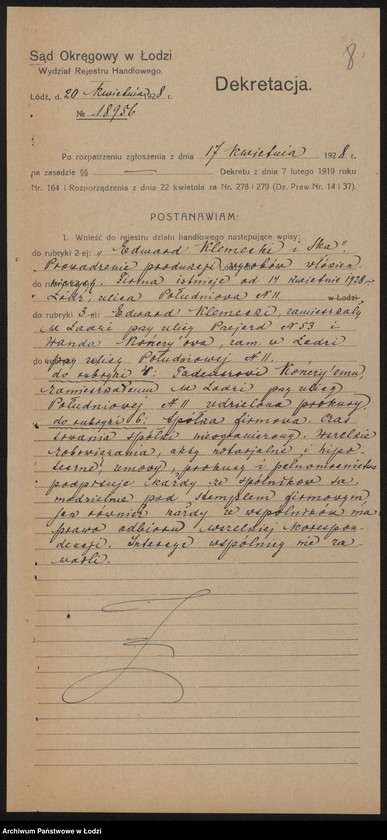 8.
Sąd Okręgowy w Łodzi
Wydział Rejestru Handlowego.
Łódź, d. 20 Kwietnia 1928 r.
№ 18956
Dekretacja.
Po rozpatrzeniu zgłoszenia z dnia 17 kwietnia 1928 r.
na zasadzie §§ — Dekretu z dnia 7 lutego 1919 roku
Nr. 164 i Rozporządzenia z dnia 22 kwietnia za Nr. 278 i 279 (Dz. Praw Nr. 14 i 37).
POSTANAWIAM:
1. Wnieść do rejestru działu handlowego następujące wpisy:
do rubryki 2-ej: „Edward Klemecki i Ska”
Prowadzenie produkcji wyrobów włókien
niczych. Firma istnieje od 14 kwietnia 1928
Łódź, ulica Południowa N 11. w Łodzi
do rubryki 3-ej: Edward Klemecki, zamieszkały
w Łodzi przy ulicy Przejazd N 53 i
Wanda zam. w Łodzi
przy ulicy Południowej N 11.
do rubryki 4: Tadeuszowi
zamieszkałemu w Łodzi przy ulicy
Południowej N 11 udzielono prokury.
do rubryki 6: Spółka firmowa. Czas
trwania spółki nieograniczony. Wszelkie
zobowiązania, akty notarjalne i hipo
teczne, umowy, prokury i pełnomocnictwa
podpisuje każdy ze spólników sa
modzielnie pod stemplem firmowym
jak również każdy ze wspólników ma
prawo odbioru wszelkiej korespon
dencji. Intercyz wspólnicy nie za
warli.
Archiwum Państwowe w Łodzi